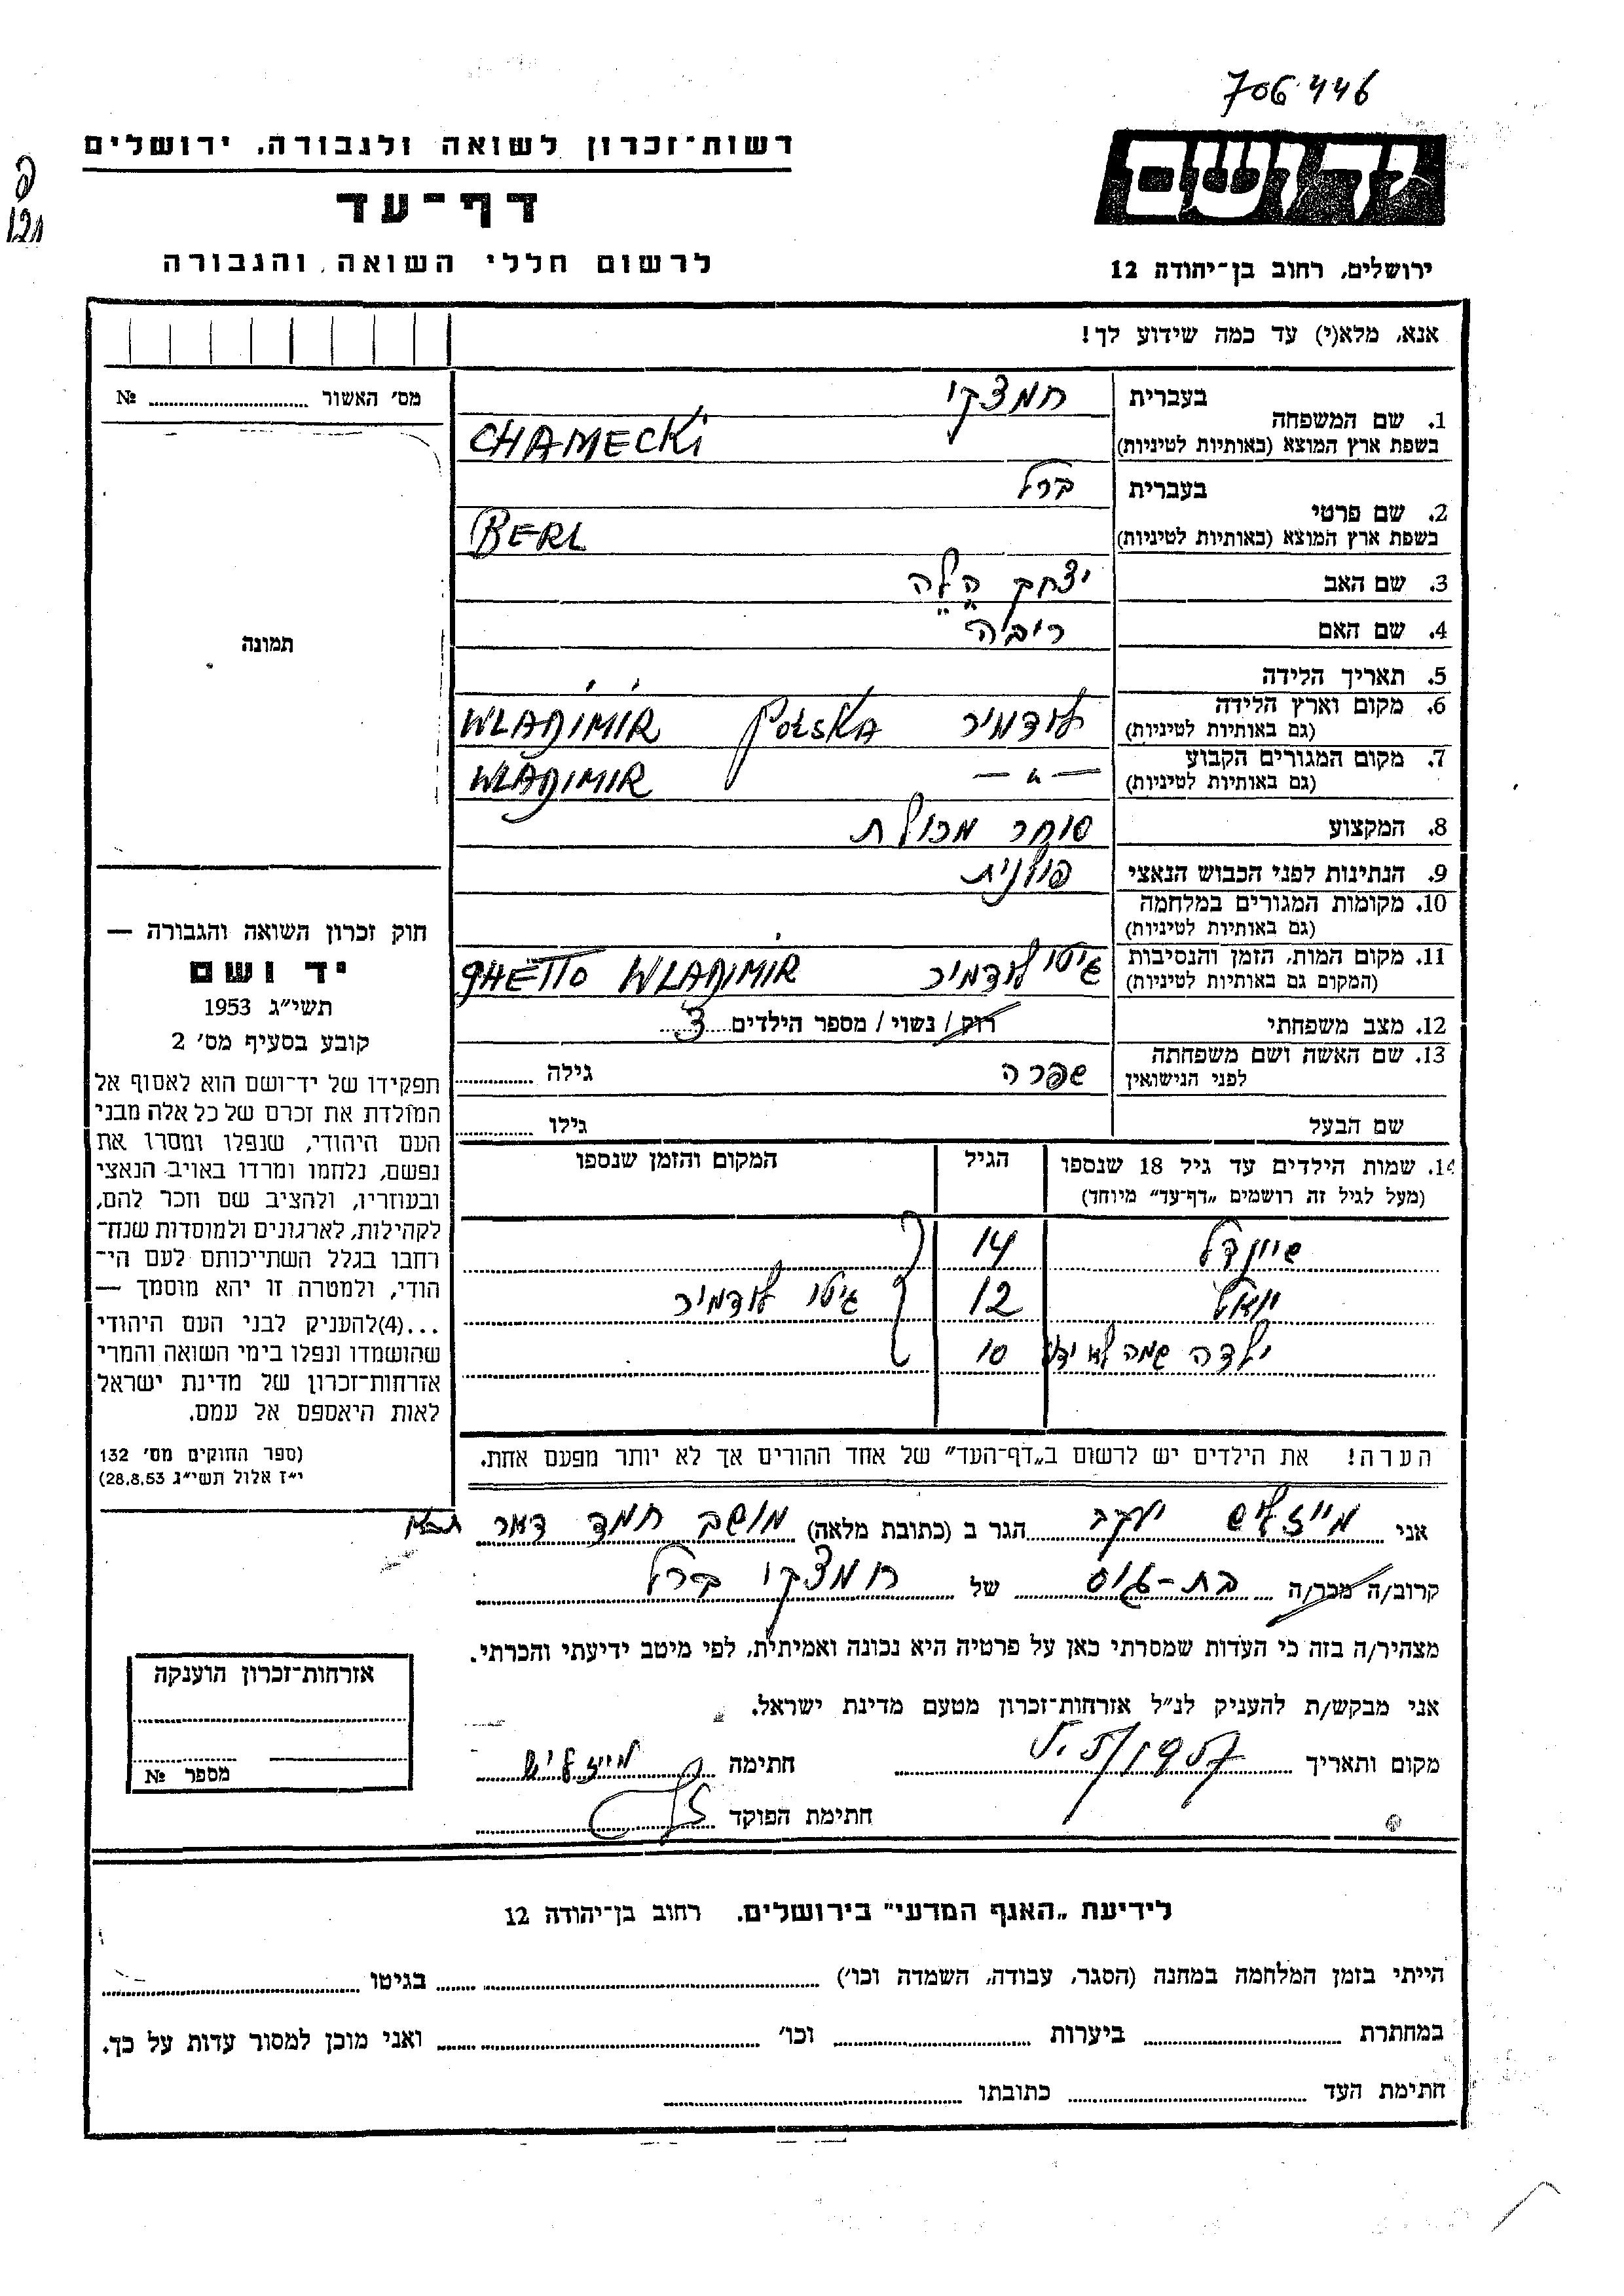 706446
יד ושם
רשות־זכרון לשואה ולגבורה, ירושלים
דף־עד
לרשום חללי השואה והגבורה
ירושלים, רחוב בן־יהודה 12
אנא, מלא(י) עד כמה שידוע לך!
מס׳ האשור № 
תמונה
1. שם המשפחה
בעברית חמצקי
בשפת ארץ המוצא (באותיות לטיניות) CHAMECKi
2. שם פרטי
בעברית ברל
בשפת ארץ המוצא (באותיות לטיניות) BERL
3. שם האב יצחק
4. שם האם ריבה
5. תאריך הלידה
6. מקום וארץ הלידה לודמיר POLSKA WLADIMIR
(גם באותיות לטיניות)
7. מקום המגורים הקבוע — " — WLADIMIR
(גם באותיות לטיניות)
8. המקצוע סוחר מכולת
9. הנתינות לפני הכבוש הנאצי פולנית
10. מקומות המגורים במלחמה
(גם באותיות לטיניות)
11. מקום המות, הזמן והנסיבות גיטו לודמיר GHETTO WLADIMIR
(המקום גם באותיות לטיניות)
12. מצב משפחתי רוק/ נשוי/ מספר הילדים 3
13. שם האשה ושם משפחתה שפרה גילה
לפני הנישואין
שם הבעל גילו
14. שמות הילדים עד גיל 18 שנספו הגיל המקום והזמן שנספו
(מעל לגיל זה רושמים „דף־עד” מיוחד)
שיינדל 14
יואל 12 גיטו לודמיר
ילדה שמה לא ידוע 10
הערה! את הילדים יש לרשום ב„דף־העד” של אחד ההורים אך לא יותר מפעם אחת.
חוק זכרון השואה והגבורה —
יד ושם
תשי״ג 1953
קובע בסעיף מס׳ 2
תפקידו של יד־ושם הוא לאסוף אל
המולדת את זכרם של כל אלה מבני
העם היהודי, שנפלו ומסרו את
נפשם, נלחמו ומרדו באויב הנאצי
ובעוזריו, ולהציב שם וזכר להם,
לקהילות, לארגונים ולמוסדות שנח־
רחבו בגלל השתייכותם לעם הי־
הודי, ולמטרה זו יהא מוסמך —
...(4)להעניק לבני העם היהודי
שהושמדו ונפלו בימי השואה והמרי
אזרחות־זכרון של מדינת ישראל
לאות היאספם אל עמם.
(ספר החוקים מס׳ 132
י״ז אלול תשי״ג 28.8.53)
אני מייזליש יעקב הגר ב (כתובת מלאה) מושב חמד דאר
קרוב/ה מכר/ה בת-גיס של חמצקי ברל
מצהיר/ה בזה כי העדות שמסרתי כאן על פרטיה היא נכונה ואמיתית, לפי מיטב ידיעתי והכרתי.
אני מבקש/ת להעניק לנ״ל אזרחות־זכרון מטעם מדינת ישראל.
מקום ותאריך 5/1957 חתימה מייזליש
חתימת הפוקד
אזרחות־זכרון הוענקה
מספר №
לידיעת „האגף המדעי” בירושלים. רחוב בן־יהודה 12
הייתי בזמן המלחמה במחנה (הסגר, עבודה, השמדה וכו׳) בגיטו
במחתרת ביערות וכו׳ ואני מוכן למסור עדות על כך.
חתימת העד כתובתו